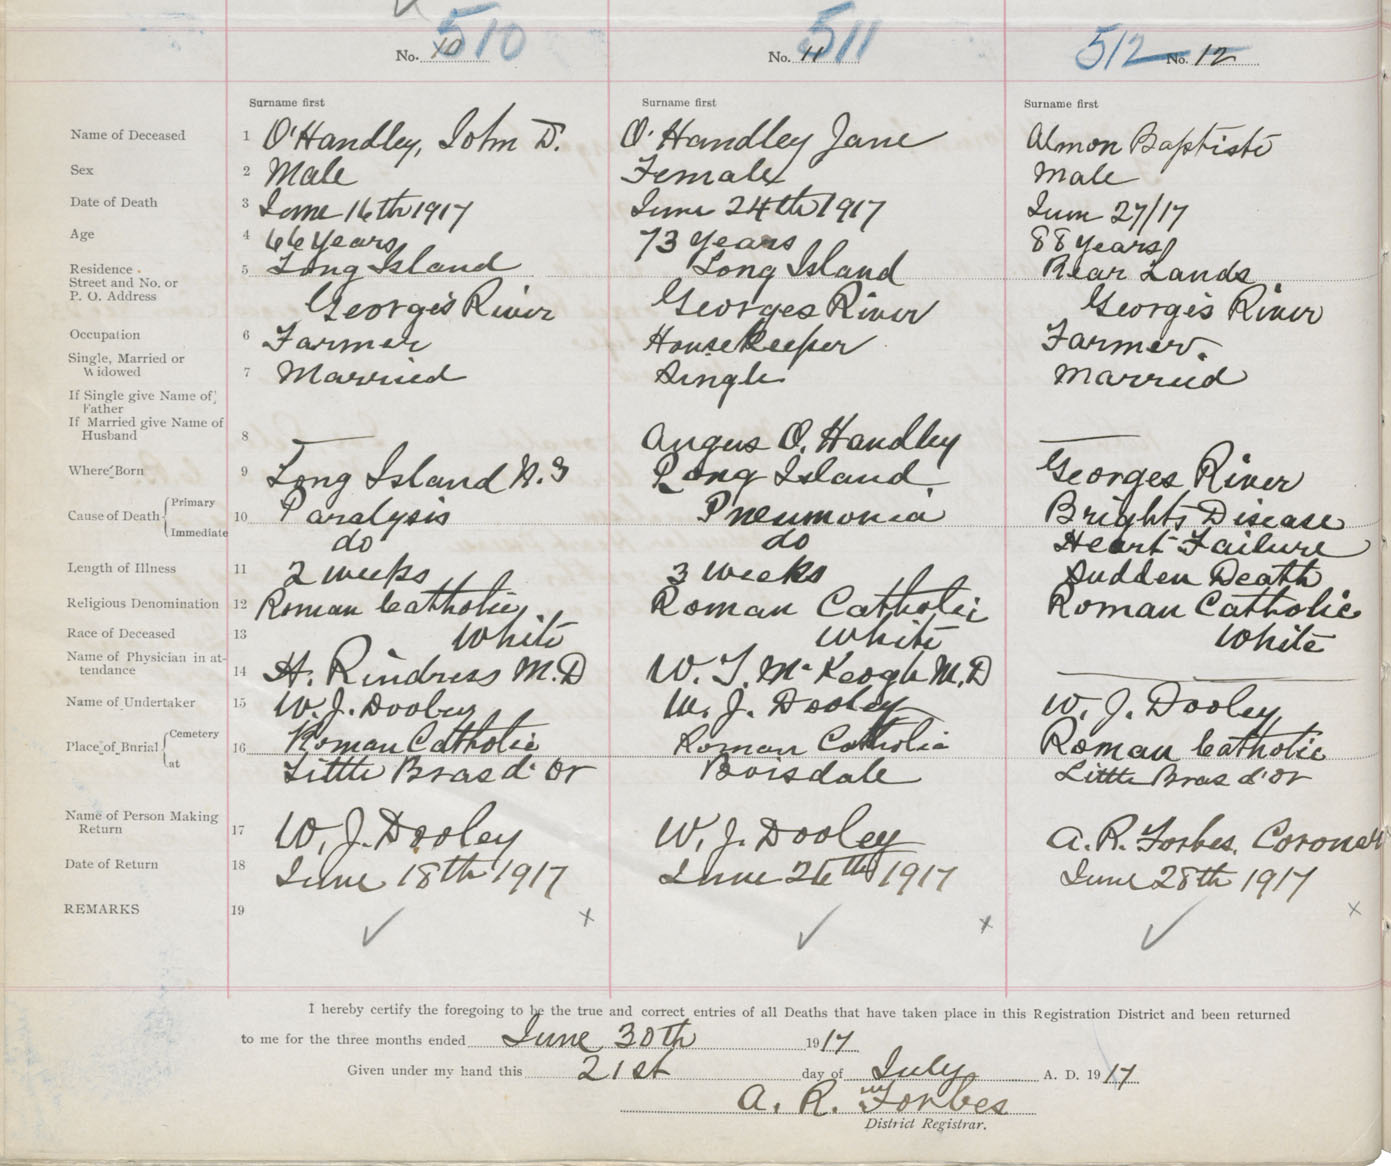 510 511 512
No. 10 No. 11 No. 12
Surname first Surname first Surname first
Name of Deceased 1 O'Handley, John D. O'Handley Jane Almon Baptiste
Sex 2 Male Female Male
Date of Death 3 June 16th 1917 June 24th 1917 June 27/17
Age 4 66 years 73 years 88 years
Residence 5 Long Island Long Island Rear Lands
Street and No. or
P. O. Address Georges River Georges River Georges River
Occupation 6 Farmer Housekeeper Farmer.
Single, Married or
Widowed 7 Married Single Married
If Single give Name of
Father
If Married give Name of
Husband 8 — Angus O. Handley —
Where Born 9 Long Island N.S Long Island Georges River
Cause of Death { Primary 10 Paralysis Pneumonia Brights Disease
Immediate do do Heart Failure
Length of Illness 11 2 weeks 3 weeks Sudden Death
Religious Denomination 12 Roman Catholic Roman Catholic Roman Catholic
Race of Deceased 13 White White White
Name of Physician in at-
tendance 14 H. Rindress M.D W. J. McKeogh M.D —
Name of Undertaker 15 W. J. Dooley W. J. Dooley W. J. Dooley
Place of Burial { Cemetery 16 Roman Catholic Roman Catholic Roman Catholic
at Little Bras d'Or Boisdale Little Bras d'Or
Name of Person Making
Return 17 W. J. Dooley W. J. Dooley A. R. Forbes, Coroner
Date of Return 18 June 18th 1917 June 26th 1917 June 28th 1917
REMARKS 19 ✓ x ✓ x ✓ x
I hereby certify the foregoing to be the true and correct entries of all Deaths that have taken place in this Registration District and been returned
to me for the three months ended June 30th 1917
Given under my hand this 21st day of July A. D. 1917
A. R. Forbes
District Registrar.